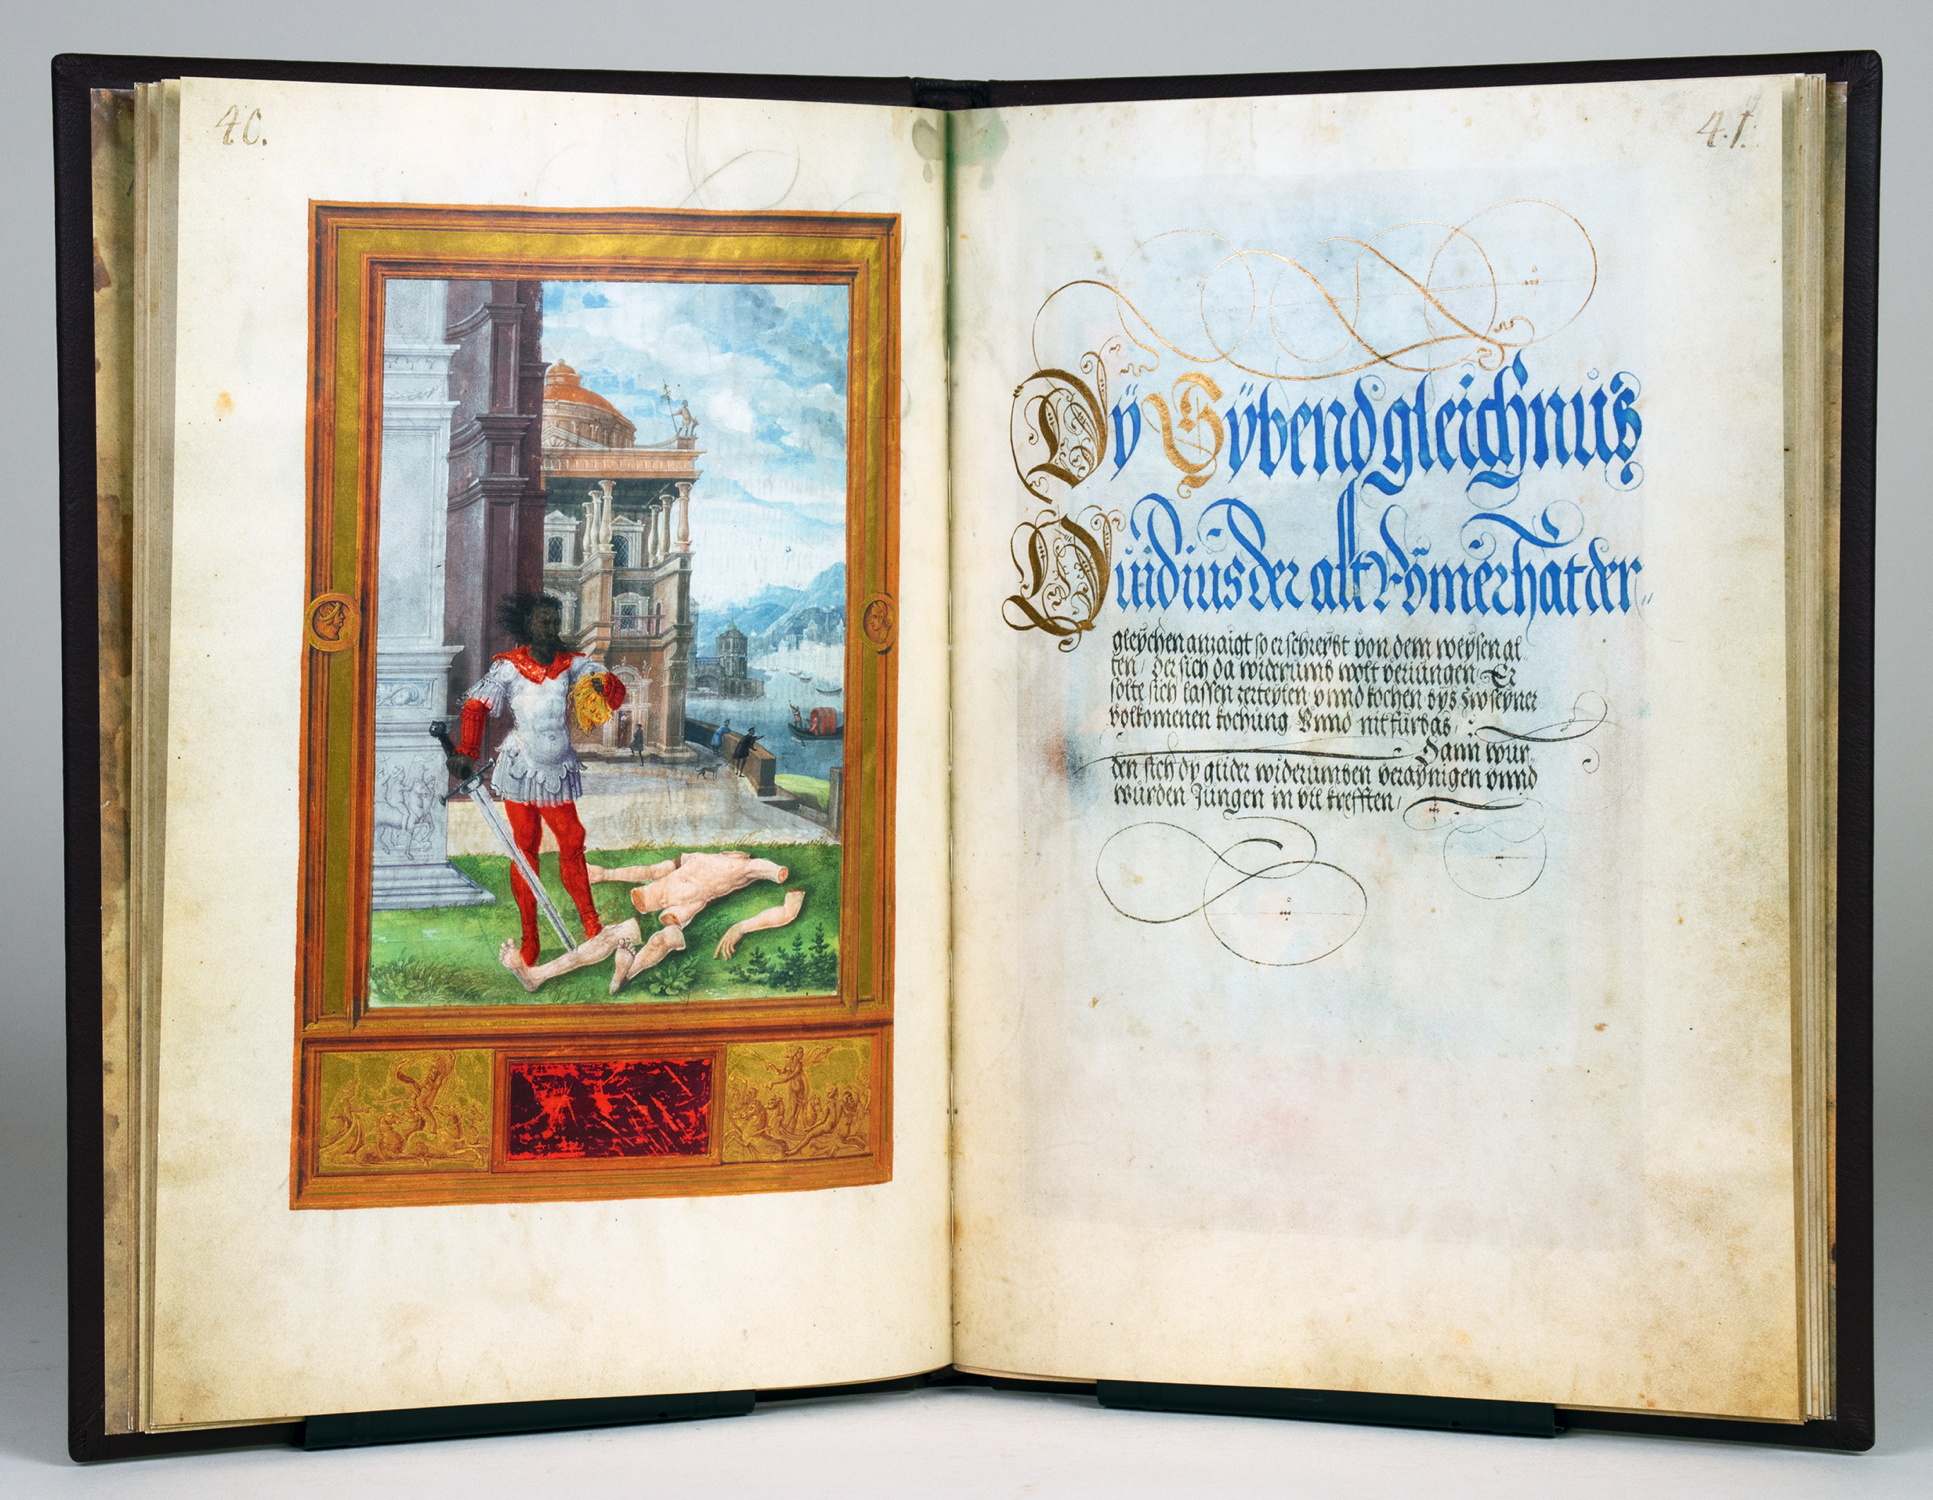 40.
41.
Dÿ Sÿbend gleichnus
Ouidius der allt Römer hat der„
gleychen anzaigt so er schreybt von dem weysen al„
ten / der sich da widerumb wolt verjungen Er
solte sich lassen zerteylen vnnd kochen bys zw seyner
volkomenen kochung Vnnd nit furbas /
Dann wur„
den sich dy glider widerumben veraynigen vnnd
wurden Jungen in vil krefften /